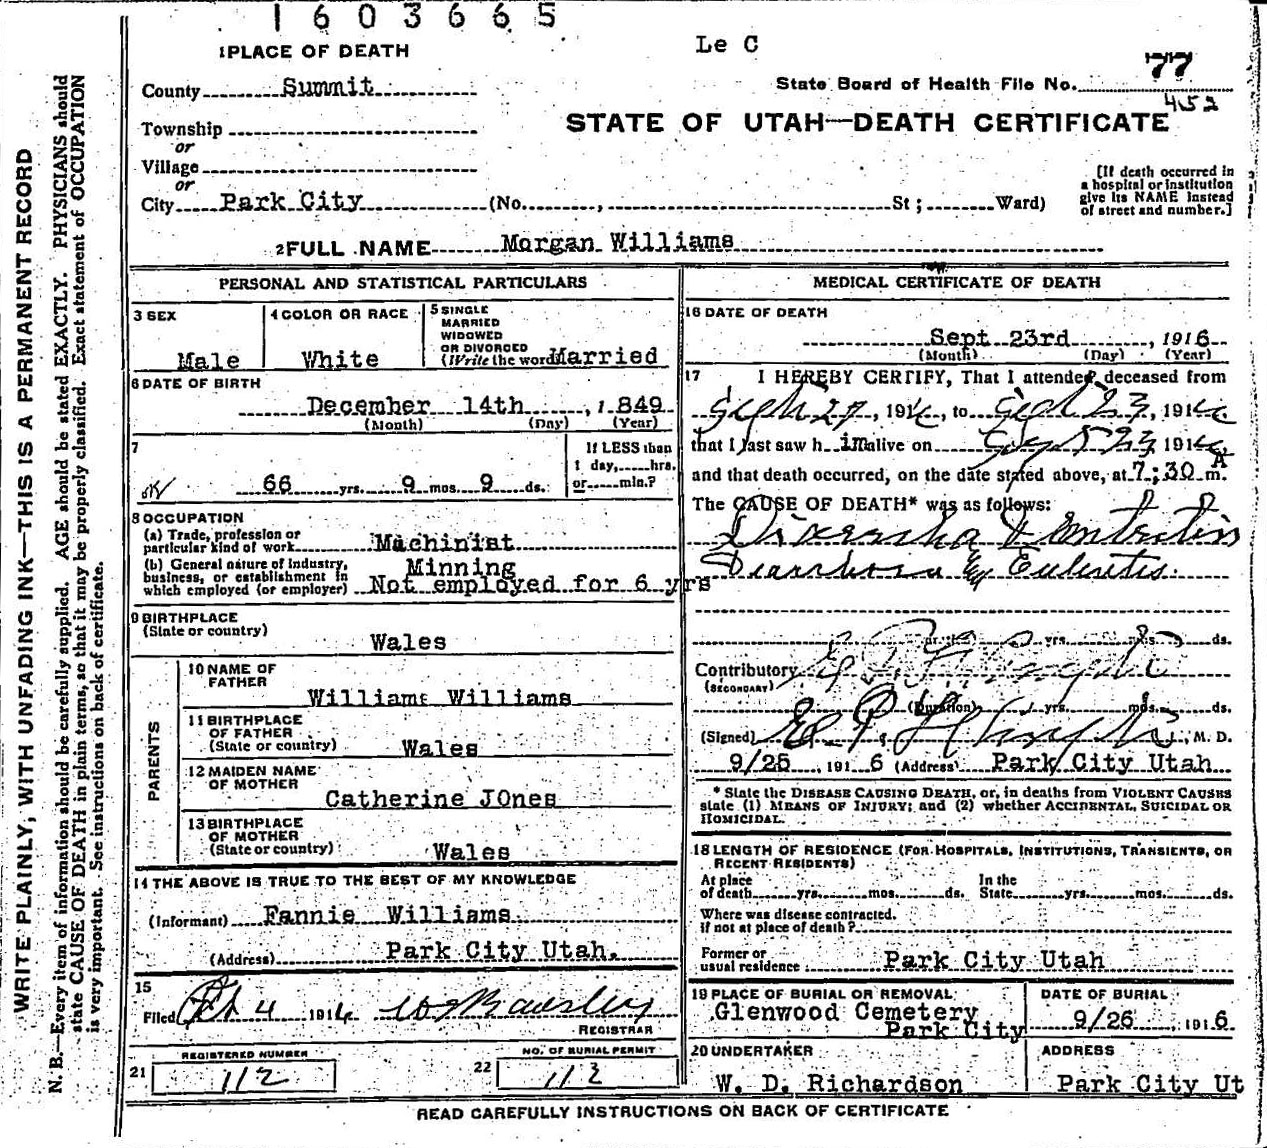 1603665
Le C
1 PLACE OF DEATH
77
State Board of Health File No.
452
County Summit
STATE OF UTAH—DEATH CERTIFICATE
Township
or
Village
or
City Park City (No. , St ; Ward)
[If death occurred in
a hospital or institution
give its NAME instead
of street and number.]
2 FULL NAME Morgan Williams
PERSONAL AND STATISTICAL PARTICULARS
3 SEX
Male
4 COLOR OR RACE
White
5 SINGLE
MARRIED
WIDOWED
OR DIVORCED
(Write the word) Married
6 DATE OF BIRTH
December 14th , 1849
(Month) (Day) (Year)
7
66 yrs. 9 mos. 9 ds.
If LESS than
1 day, hrs.
or min.?
8 OCCUPATION
(a) Trade, profession or
particular kind of work Machinist
(b) General nature of industry,
business, or establishment in
which employed (or employer)
Minning
Not employed for 6 yrs
9 BIRTHPLACE
(State or country)
Wales
PARENTS
10 NAME OF
FATHER
Williams Williams
11 BIRTHPLACE
OF FATHER
(State or country) Wales
12 MAIDEN NAME
OF MOTHER
Catherine JOnes
13 BIRTHPLACE
OF MOTHER
(State or country) Wales
14 THE ABOVE IS TRUE TO THE BEST OF MY KNOWLEDGE
(Informant) Fannie Williams.
(Address) Park City Utah.
15
Filed Oct 4 1916
REGISTRAR
REGISTERED NUMBER
21 112
NO. OF BURIAL PERMIT
22 112
MEDICAL CERTIFICATE OF DEATH
16 DATE OF DEATH
Sept 23rd , 1916
(Month) (Day) (Year)
17 I HEREBY CERTIFY, That I attended deceased from
, 1916, to Sept 23, 1916
that I last saw h im alive on Sept 23 1916
and that death occurred, on the date stated above, at 7:30 A m.
The CAUSE OF DEATH* was as follows:
Diarrhoea
yrs. mos. ds.
Contributory
(SECONDARY)
(Duration) yrs. mos. ds.
(Signed) , M. D.
9/25 , 1916 (Address) Park City Utah
* State the DISEASE CAUSING DEATH, or, in deaths from VIOLENT CAUSES
state (1) MEANS OF INJURY; and (2) whether ACCIDENTAL, SUICIDAL OR
HOMICIDAL.
18 LENGTH OF RESIDENCE (FOR HOSPITALS, INSTITUTIONS, TRANSIENTS, OR
RECENT RESIDENTS)
At place
of death yrs. mos. ds.
In the
State yrs. mos. ds.
Where was disease contracted.
if not at place of death?
Former or
usual residence Park City Utah
19 PLACE OF BURIAL OR REMOVAL
Glenwood Cemetery
Park City
DATE OF BURIAL
9/26 , 1916
20 UNDERTAKER
W. D. Richardson
ADDRESS
Park City Ut
READ CAREFULLY INSTRUCTIONS ON BACK OF CERTIFICATE
WRITE PLAINLY, WITH UNFADING INK—THIS IS A PERMANENT RECORD
N. B.—Every item of information should be carefully supplied. AGE should be stated EXACTLY. PHYSICIANS should
state CAUSE OF DEATH in plain terms, so that it may be properly classified. Exact statement of OCCUPATION
is very important. See instructions on back of certificate.